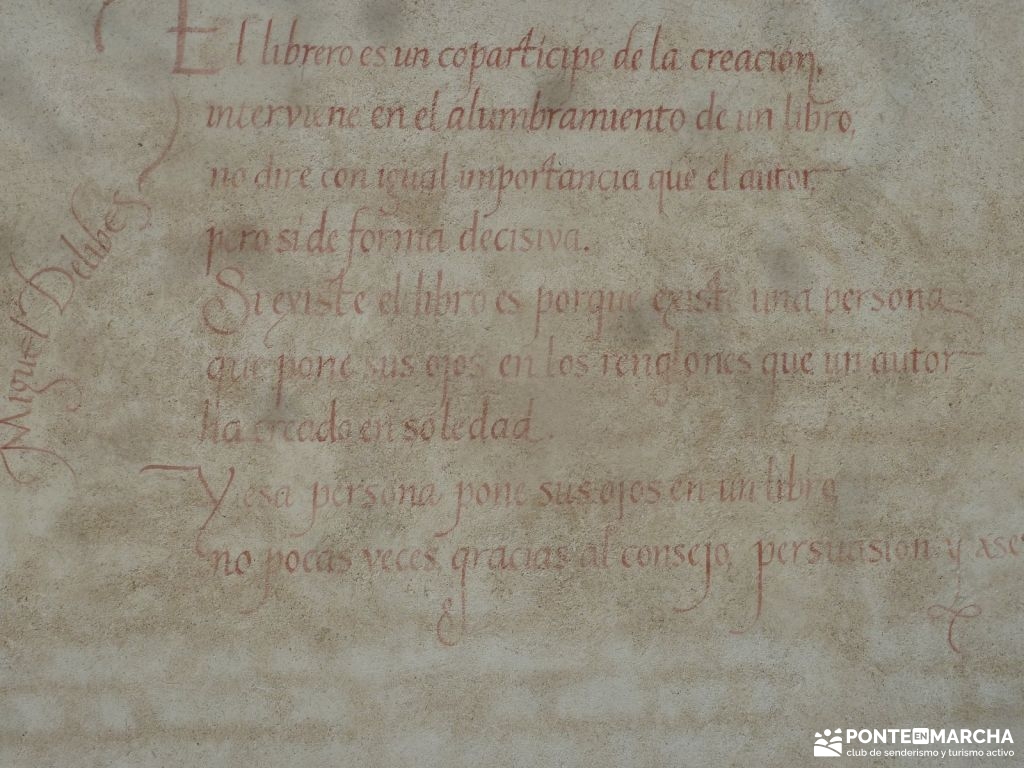 El librero es un copartícipe de la creación,
interviene en el alumbramiento de un libro,
no diré con igual importancia que el autor,
pero sí de forma decisiva.
Si existe el libro es porque existe una persona
que pone sus ojos en los renglones que un autor
ha creado en soledad.
Y esa persona pone sus ojos en un libro,
no pocas veces gracias al consejo, persuasión y
Miguel Delibes
PONTE EN MARCHA
club de senderismo y turismo activo